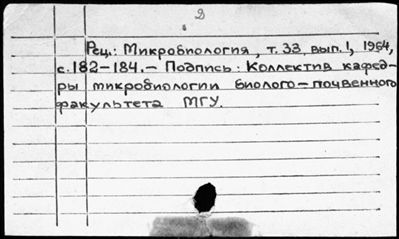 2
Рец.: Микробиология, т. 33, вып. 1, 1964,
с. 182-184. – Подпись: Коллектив кафед-
ры микробиологии биолого-почвенного
факультета МГУ.